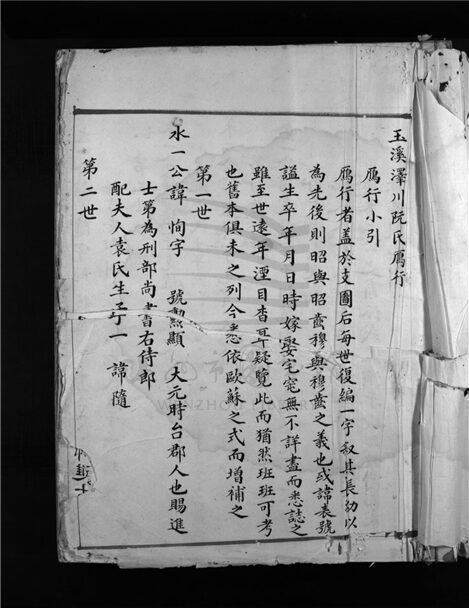 玉溪澤川阮氏鴈行
鴈行小引
鴈行者蓋於支圖后每世復編一字叙其長幼以
為先後則昭與昭齒穆與穆齒之義也或諱表號
諡生卒年月日時嫁娶宅窀無不詳盡而悉誌之
雖至世遠年湮目杳耳疑覽此而猶然班班可考
也舊本俱未之列今悉依歐蘇之式而增補之
第一世
水一公諱 恂字 號 顯 大元時台郡人也賜進
士第為刑部尚書右侍郎
配夫人袁氏生子一 諱隨
第二世